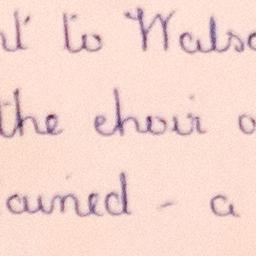 to Walso
the choir o
ained - a